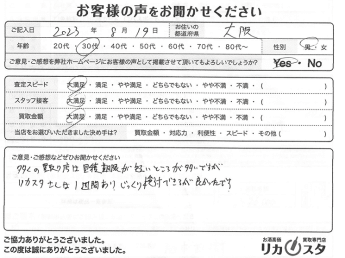 お客様の声をお聞かせください
ご記入日 2023年 8月 19日 お住いの都道府県 大阪
年齢 20代・30代・40代・50代・60代・70代・80代〜 性別 男・女
ご意見・ご感想を弊社ホームページにお客様の声として掲載させて頂いてもよろしいでしょうか? Yes・No
査定スピード 大満足・満足・やや満足・どちらでもない・やや不満・不満・( )
スタッフ接客 大満足・満足・やや満足・どちらでもない・やや不満・不満・( )
買取金額 大満足・満足・やや満足・どちらでもない・やや不満・不満・( )
当店をお選びいただきました決め手は? 買取金額・対応力・利便性・スピード・その他( )
ご意見・ご感想などぜひお聞かせください
多くの買取り店は 期限が短いところが多いですが
リカスタさんは1週間ありじっくり検討できるが良かったです
ご協力ありがとうございました。
この度は誠にありがとうございました。
お酒高価買取専門店
リカスタ